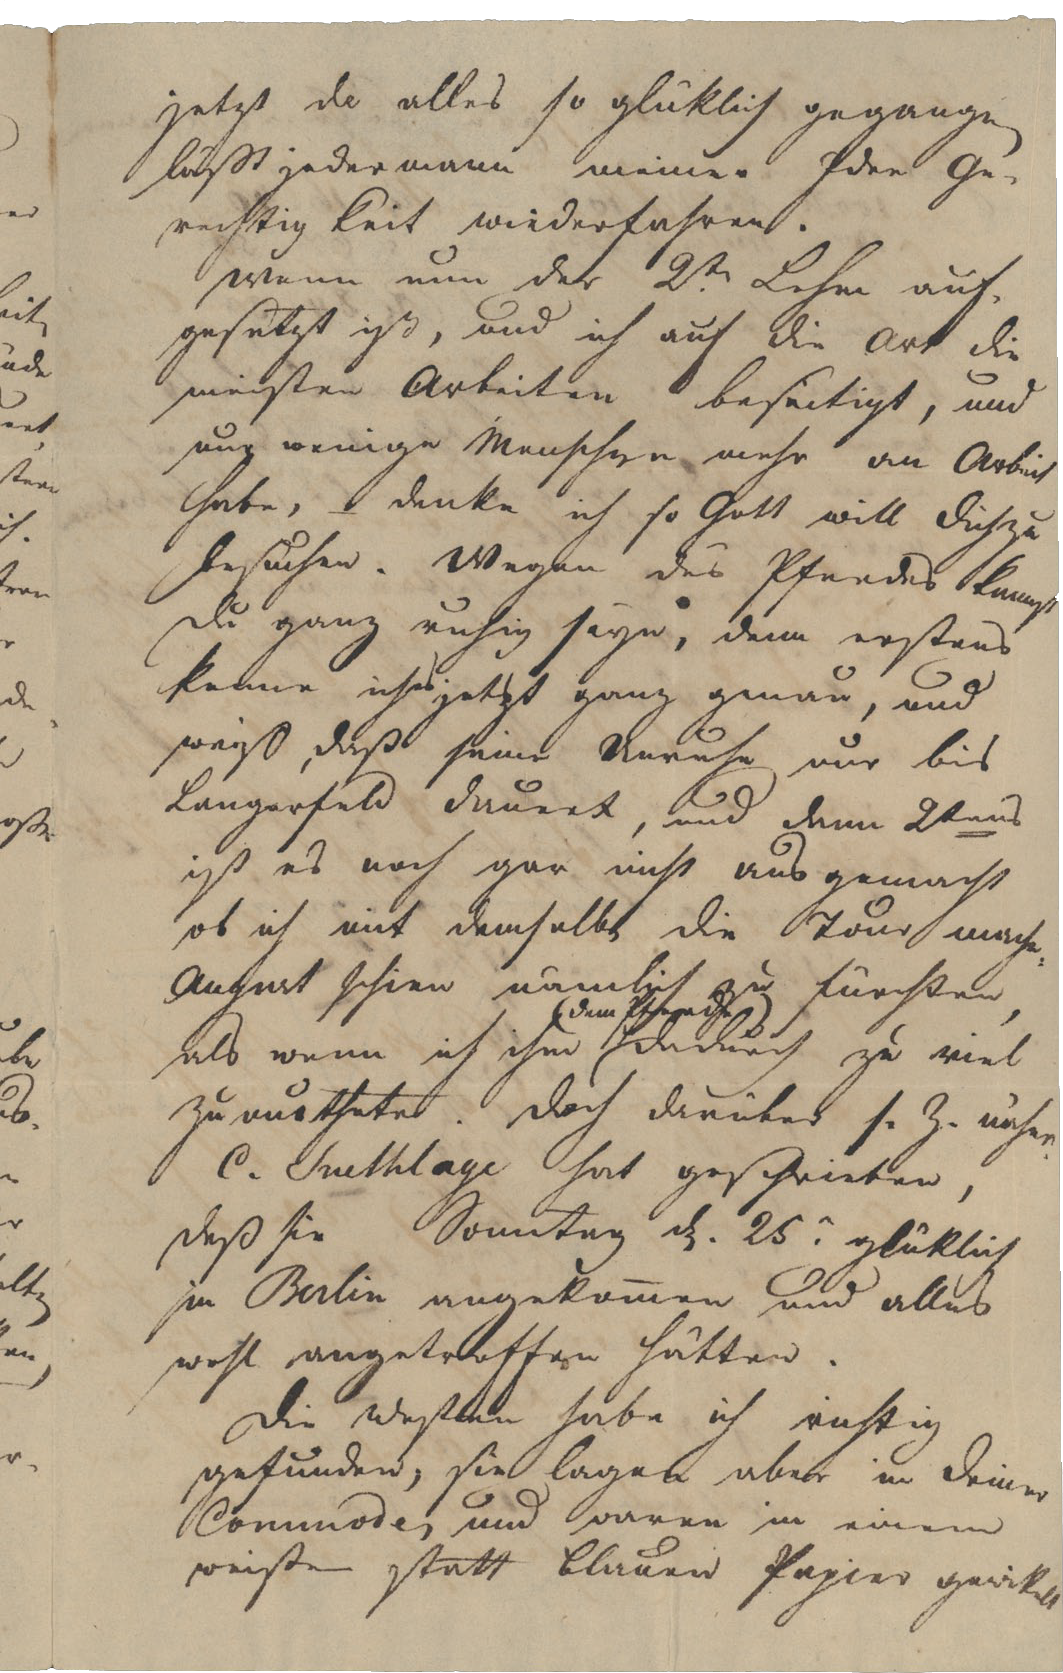 jetzt da alles so glüklich gegangen
läßt jedermann meiner Idee Ge-
rechtigkeit wiederfahren.
Wenn nun der 2te Lehm auf-
gesetzt ist, und ich auf die Art die
meisten Arbeiten beseitigt, und
nur wenige Menschen mehr an Arbeit
habe, denke ich so Gott will dich zu
besuchen. Wegen des Pferdes kannst
Du ganz ruhig seyn, denn erstens
kenne ich es jetzt ganz genau, und
weiß, daß seine Unruhe nur bis
Langerfeld dauert, und dann 2tens
ist es noch gar nicht ausgemacht
ob ich mit demselben die Tour mache.
August schien nämlich zu fürchten,
(dem Pferde)
als wenn ich ihm dadurch zu viel
zumuthete. Doch darüber s. Z. näher.
C. Snethlage hat geschrieben,
daß sie Sonntag d. 25. glüklich
in Berlin angekom̄en und alles
wohl angetroffen hätten.
Die Westen habe ich richtig
gefunden, sie lagen aber in Deiner
Commode, und waren in einem
weißen statt blauen Papier gewikelt